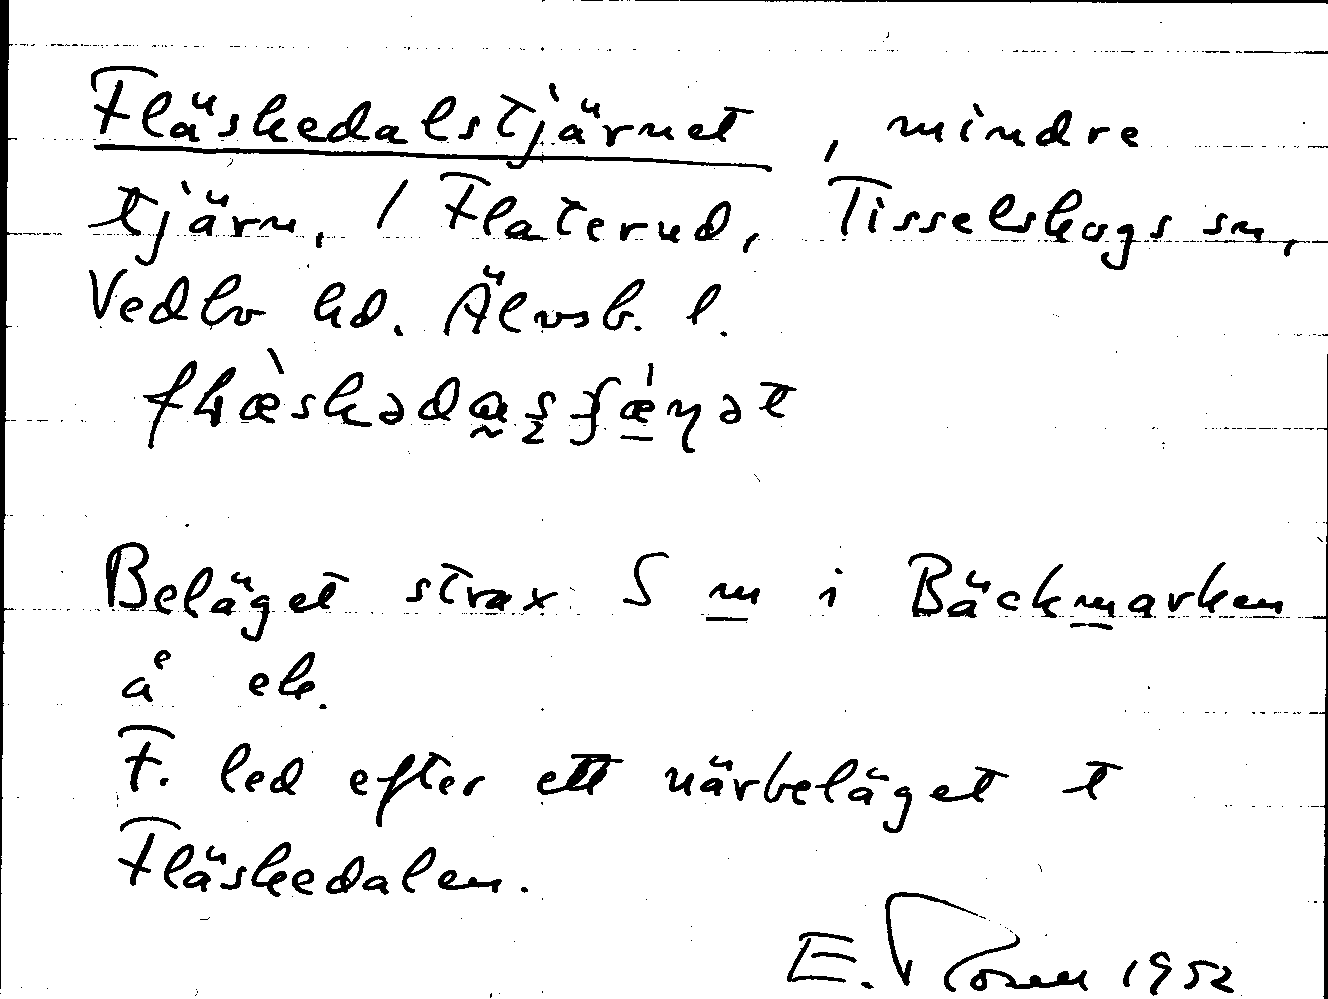 Fläskedalstjärnet, mindre
tjärn, / Flaterud, Tisselskogs sn,
Vedbo hd. Älvsb. l.
Beläget strax S m i Bäckmarken
å ek.
F. led efter ett närbeläget t
Fläskedalen.
E. Rosen 1952